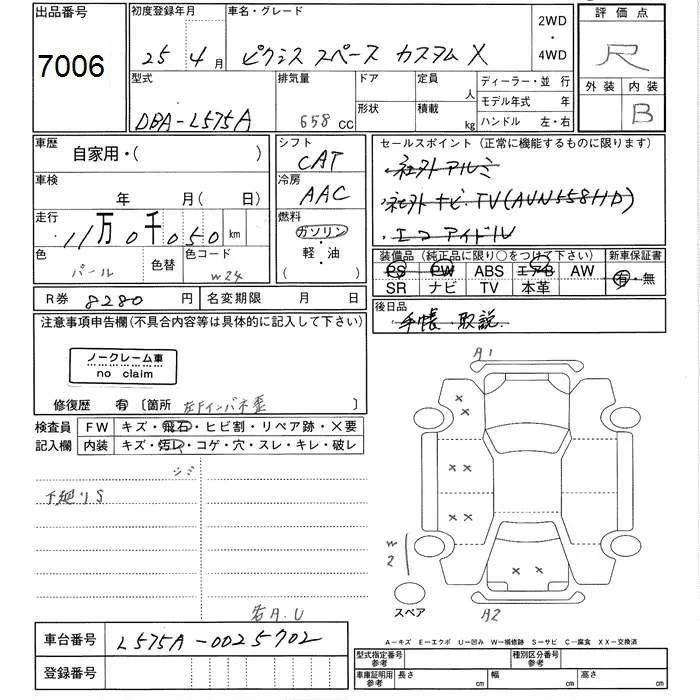 出品番号
7006
初度登録年月
25 4月
車名・グレード
ピクシス スペース カスタム X
2WD
・
4WD
評価点
R
型式
DBA-L575A
排気量
658 CC
ドア
形状
定員
人
積載
kg
ディーラー・並 行
モデル年式 年
ハンドル 左・右
外装 内装
B
車歴
自家用・( )
車検
年 月( 日)
走行
11万0千050 km
色
パール
色替
色コード
W24
シフト
CAT
冷房
AAC
燃料
ガソリン
・
軽・油
セールスポイント(正常に機能するものに限ります)
・社外アルミ
・社外ナビ・TV(AVN558HD)
・エコアイドル
装備品(純正品に限り○をつけて下さい)
PS PW ABS エアB AW
SR ナビ TV 本革
新車保証書
有・無
R券 8280 円
名変期限 月 日
後日品
手帳・取説
注意事項申告欄(不具合内容等は具体的に記入して下さい)
ノークレーム車
no claim
修復歴 有 〔箇所 左Fインパネ歪 〕
検査員
記入欄
FW キズ・飛石・ヒビ割・リペア跡・×要
内装 キズ・汚レ・コゲ・穴・スレ・キレ・破レ
シミ
下廻りS
右A.U
A1
×
×
× ×
× ×
× ×
W
2
スペア
A2
A−キズ E−エクボ U−凹み W−補修跡 S−サビ C−腐食 XX−交換済
車台番号 L575A-0025702
登録番号
型式指定番号
参考
種別区分番号
参考
車庫証明用
参考
長さ cm
幅 cm
高さ cm